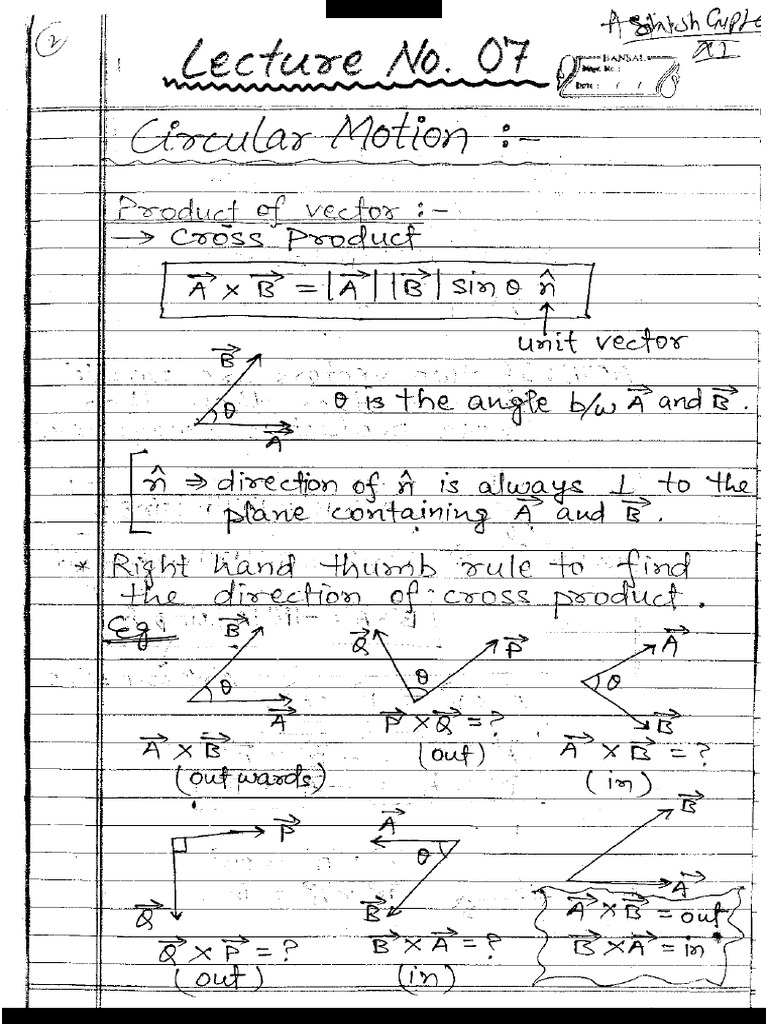 2
Ashish Gupta
XI
Lecture No. 07
BANSAL
Page No.:
Date: / /
Circular Motion :-
Product of vector :-
→ Cross Product
A⃗ × B⃗ = |A⃗| |B⃗| sin θ n̂
unit vector
B⃗
θ
A⃗
θ is the angle b/w A⃗ and B⃗.
n̂ ⇒ direction of n̂ is always ⊥ to the
plane containing A⃗ and B⃗.
* Right hand thumb rule to find
the direction of cross product.
Eg
B⃗ θ A⃗
Q⃗ θ P⃗
A⃗ θ B⃗
A⃗ × B⃗
(outwards)
P⃗ × Q⃗ = ?
(out)
A⃗ × B⃗ = ?
(in)
P⃗
Q⃗
A⃗
θ
B⃗
B⃗
A⃗
Q⃗ × P⃗ = ?
(out)
B⃗ × A⃗ = ?
(in)
A⃗ × B⃗ = out
B⃗ × A⃗ = in